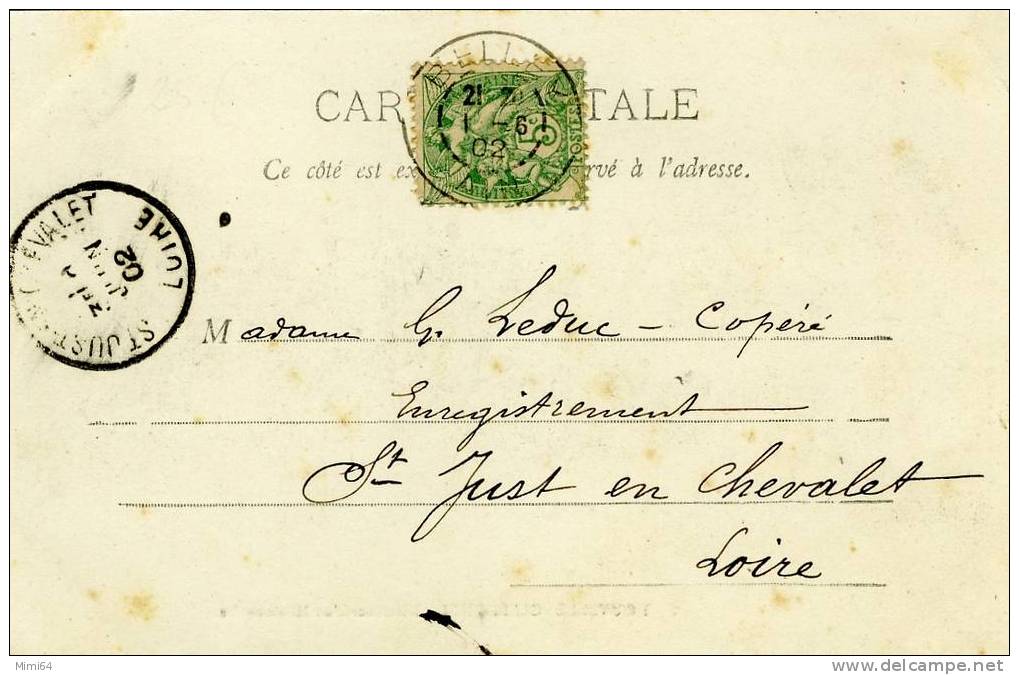 CAR TALE
Ce côté est ex rvé à l'adresse.
21
1 - 6
02
ST JUST EN CHEVALET
2
JUIN
02
LOIRE
Madame G. Leduc - Copéré
Enregistrement
St Just en Chevalet
Loire
Mimi64
delcampe.net